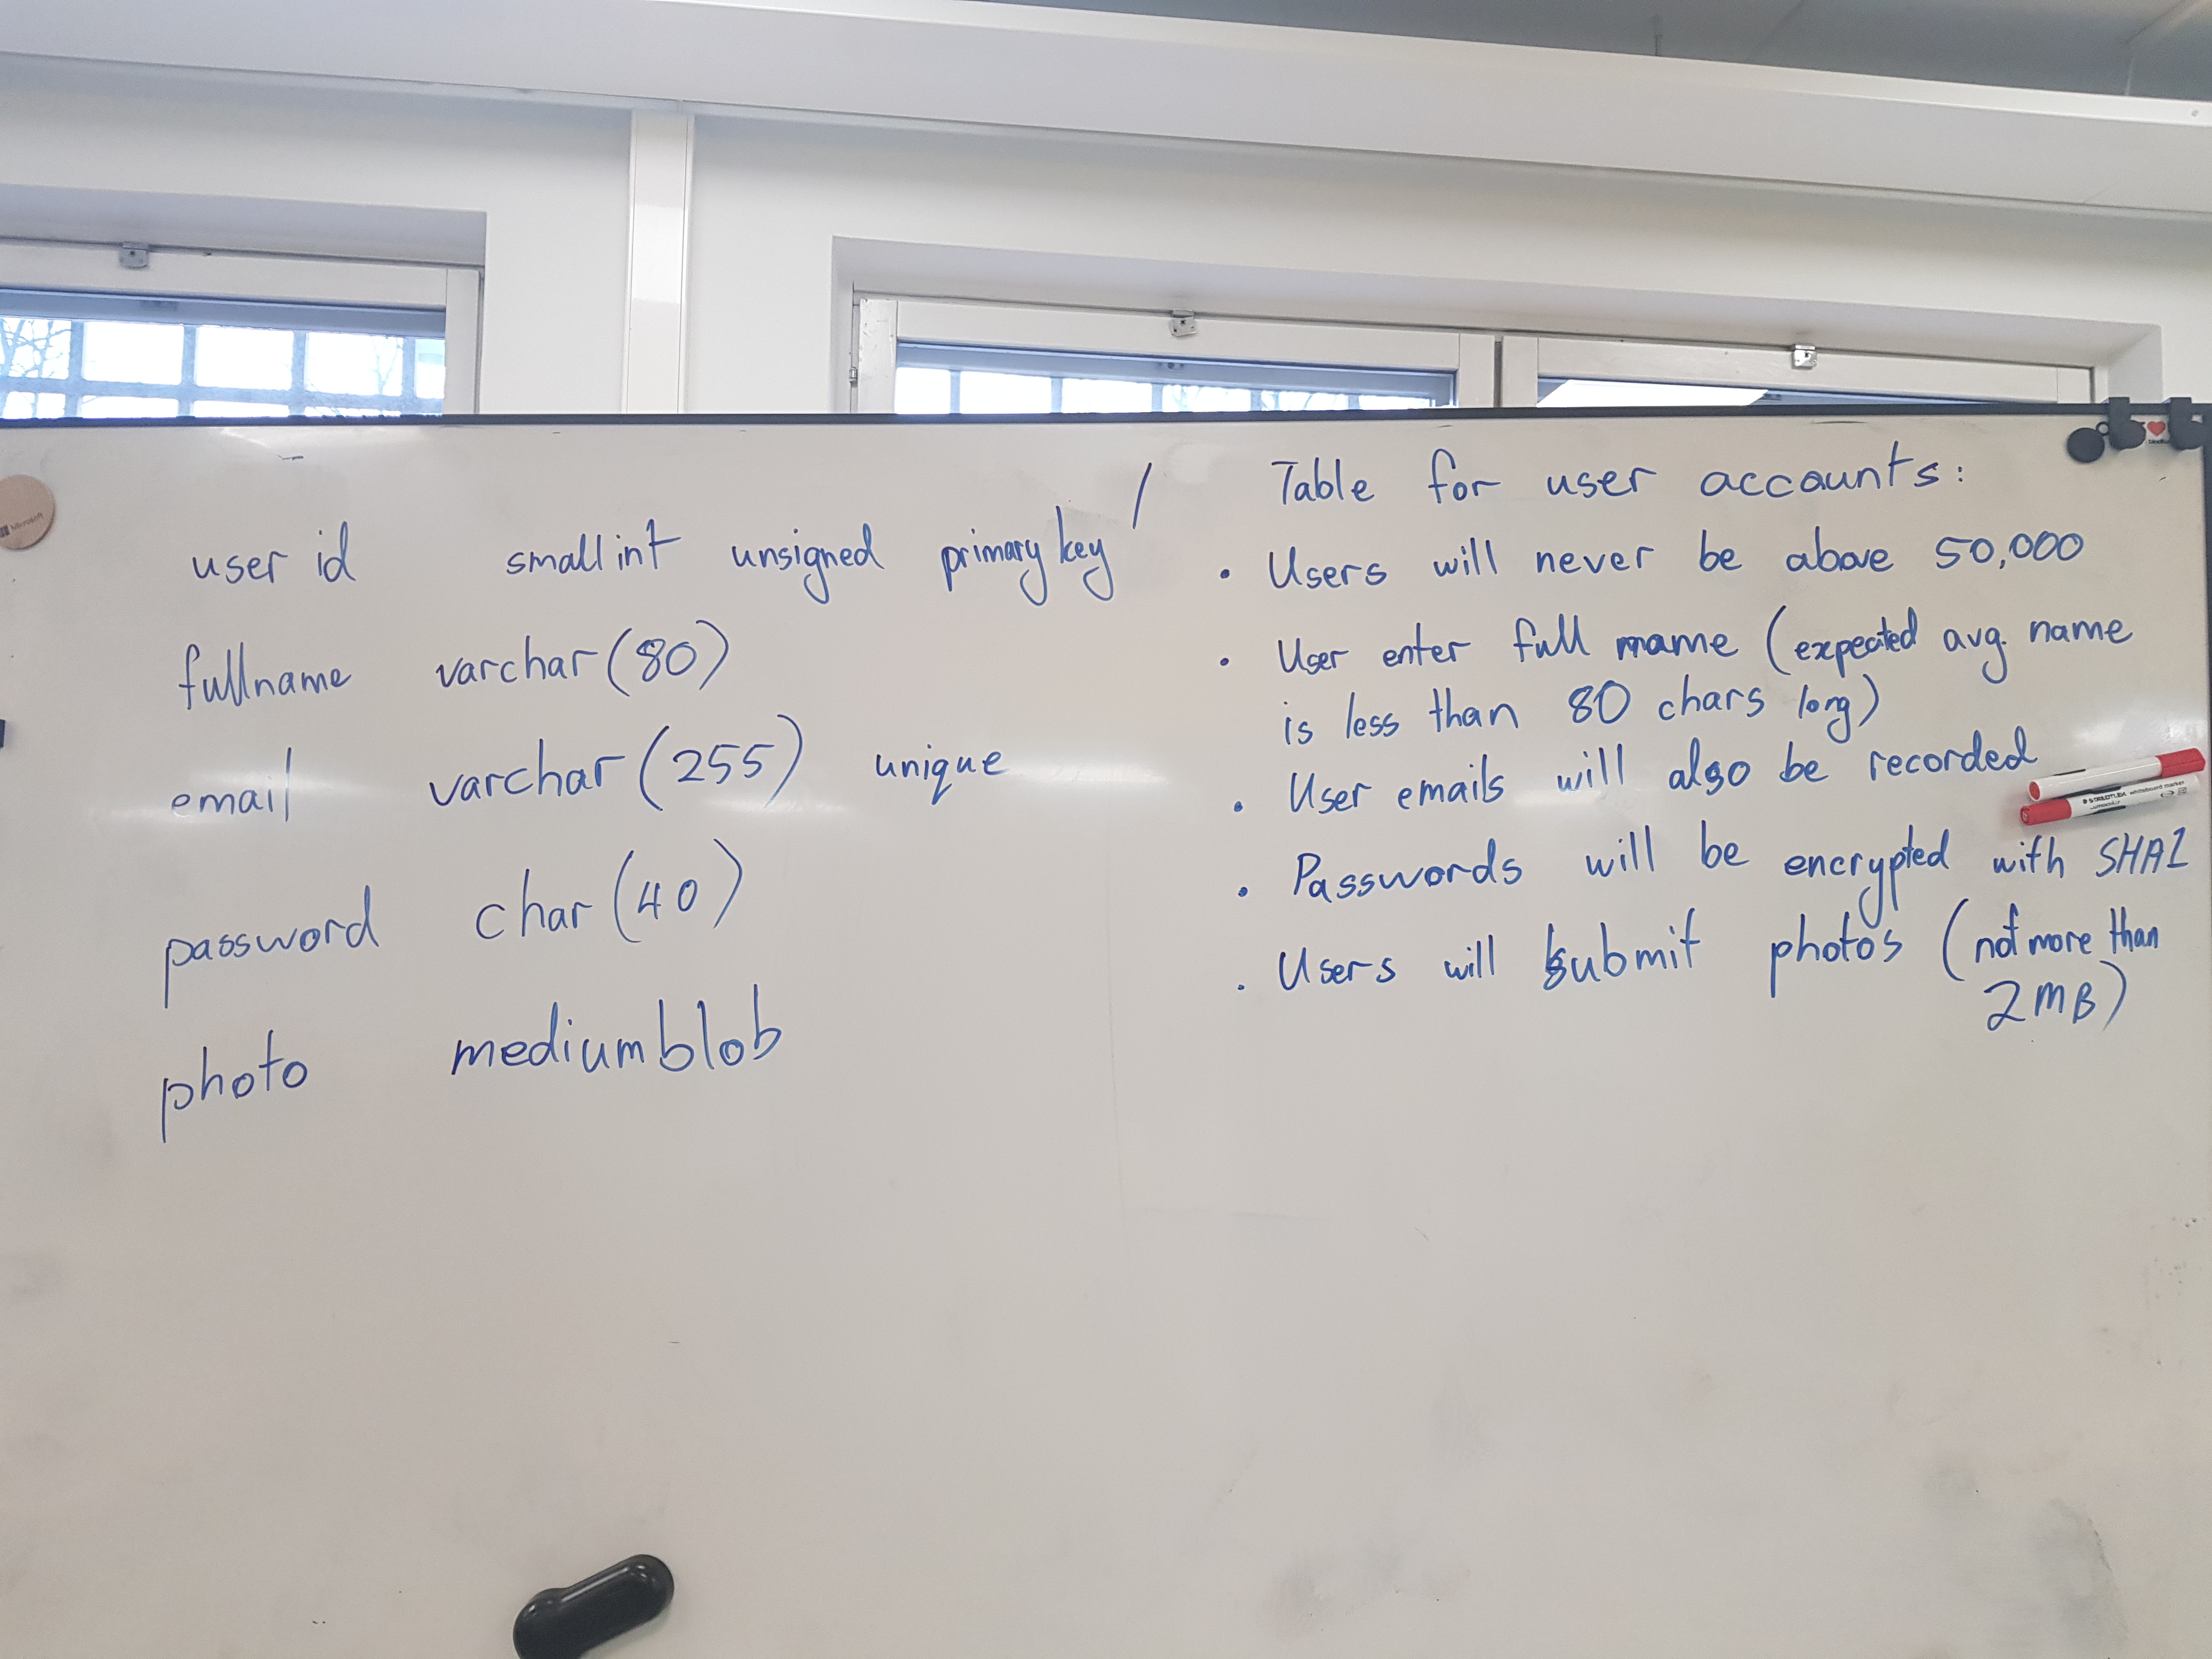 user id smallint unsigned primary key /
fullname varchar(80)
email varchar(255) unique
password char(40)
photo mediumblob
Table for user accounts:
• Users will never be above 50,000
• User enter full name (expected avg. name
is less than 80 chars long)
• User emails will also be recorded
• Passwords will be encrypted with SHA1
• Users will submit photos (not more than
2MB)
Microsoft
STAEDTLER whiteboard marker